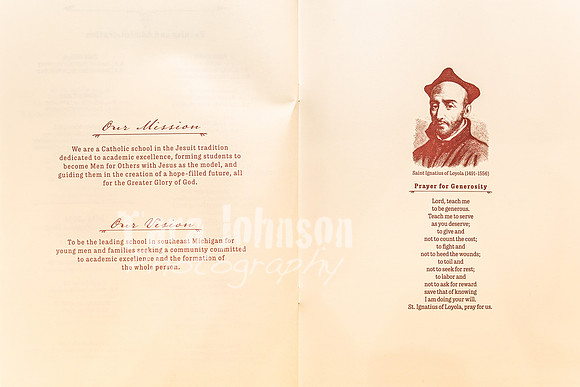 Our Mission
We are a Catholic school in the Jesuit tradition
dedicated to academic excellence, forming students to
become Men for Others with Jesus as the model, and
guiding them in the creation of a hope-filled future, all
for the Greater Glory of God.
Our Vision
To be the leading school in southeast Michigan for
young men and families seeking a community committed
to academic excellence and the formation of
the whole person.
Johnson
Saint Ignatius of Loyola (1491-1556)
Prayer for Generosity
Lord, teach me
to be generous.
Teach me to serve
as you deserve;
to give and
not to count the cost;
to fight and
not to heed the wounds;
to toil and
not to seek for rest;
to labor and
not to ask for reward
save that of knowing
I am doing your will.
St. Ignatius of Loyola, pray for us.